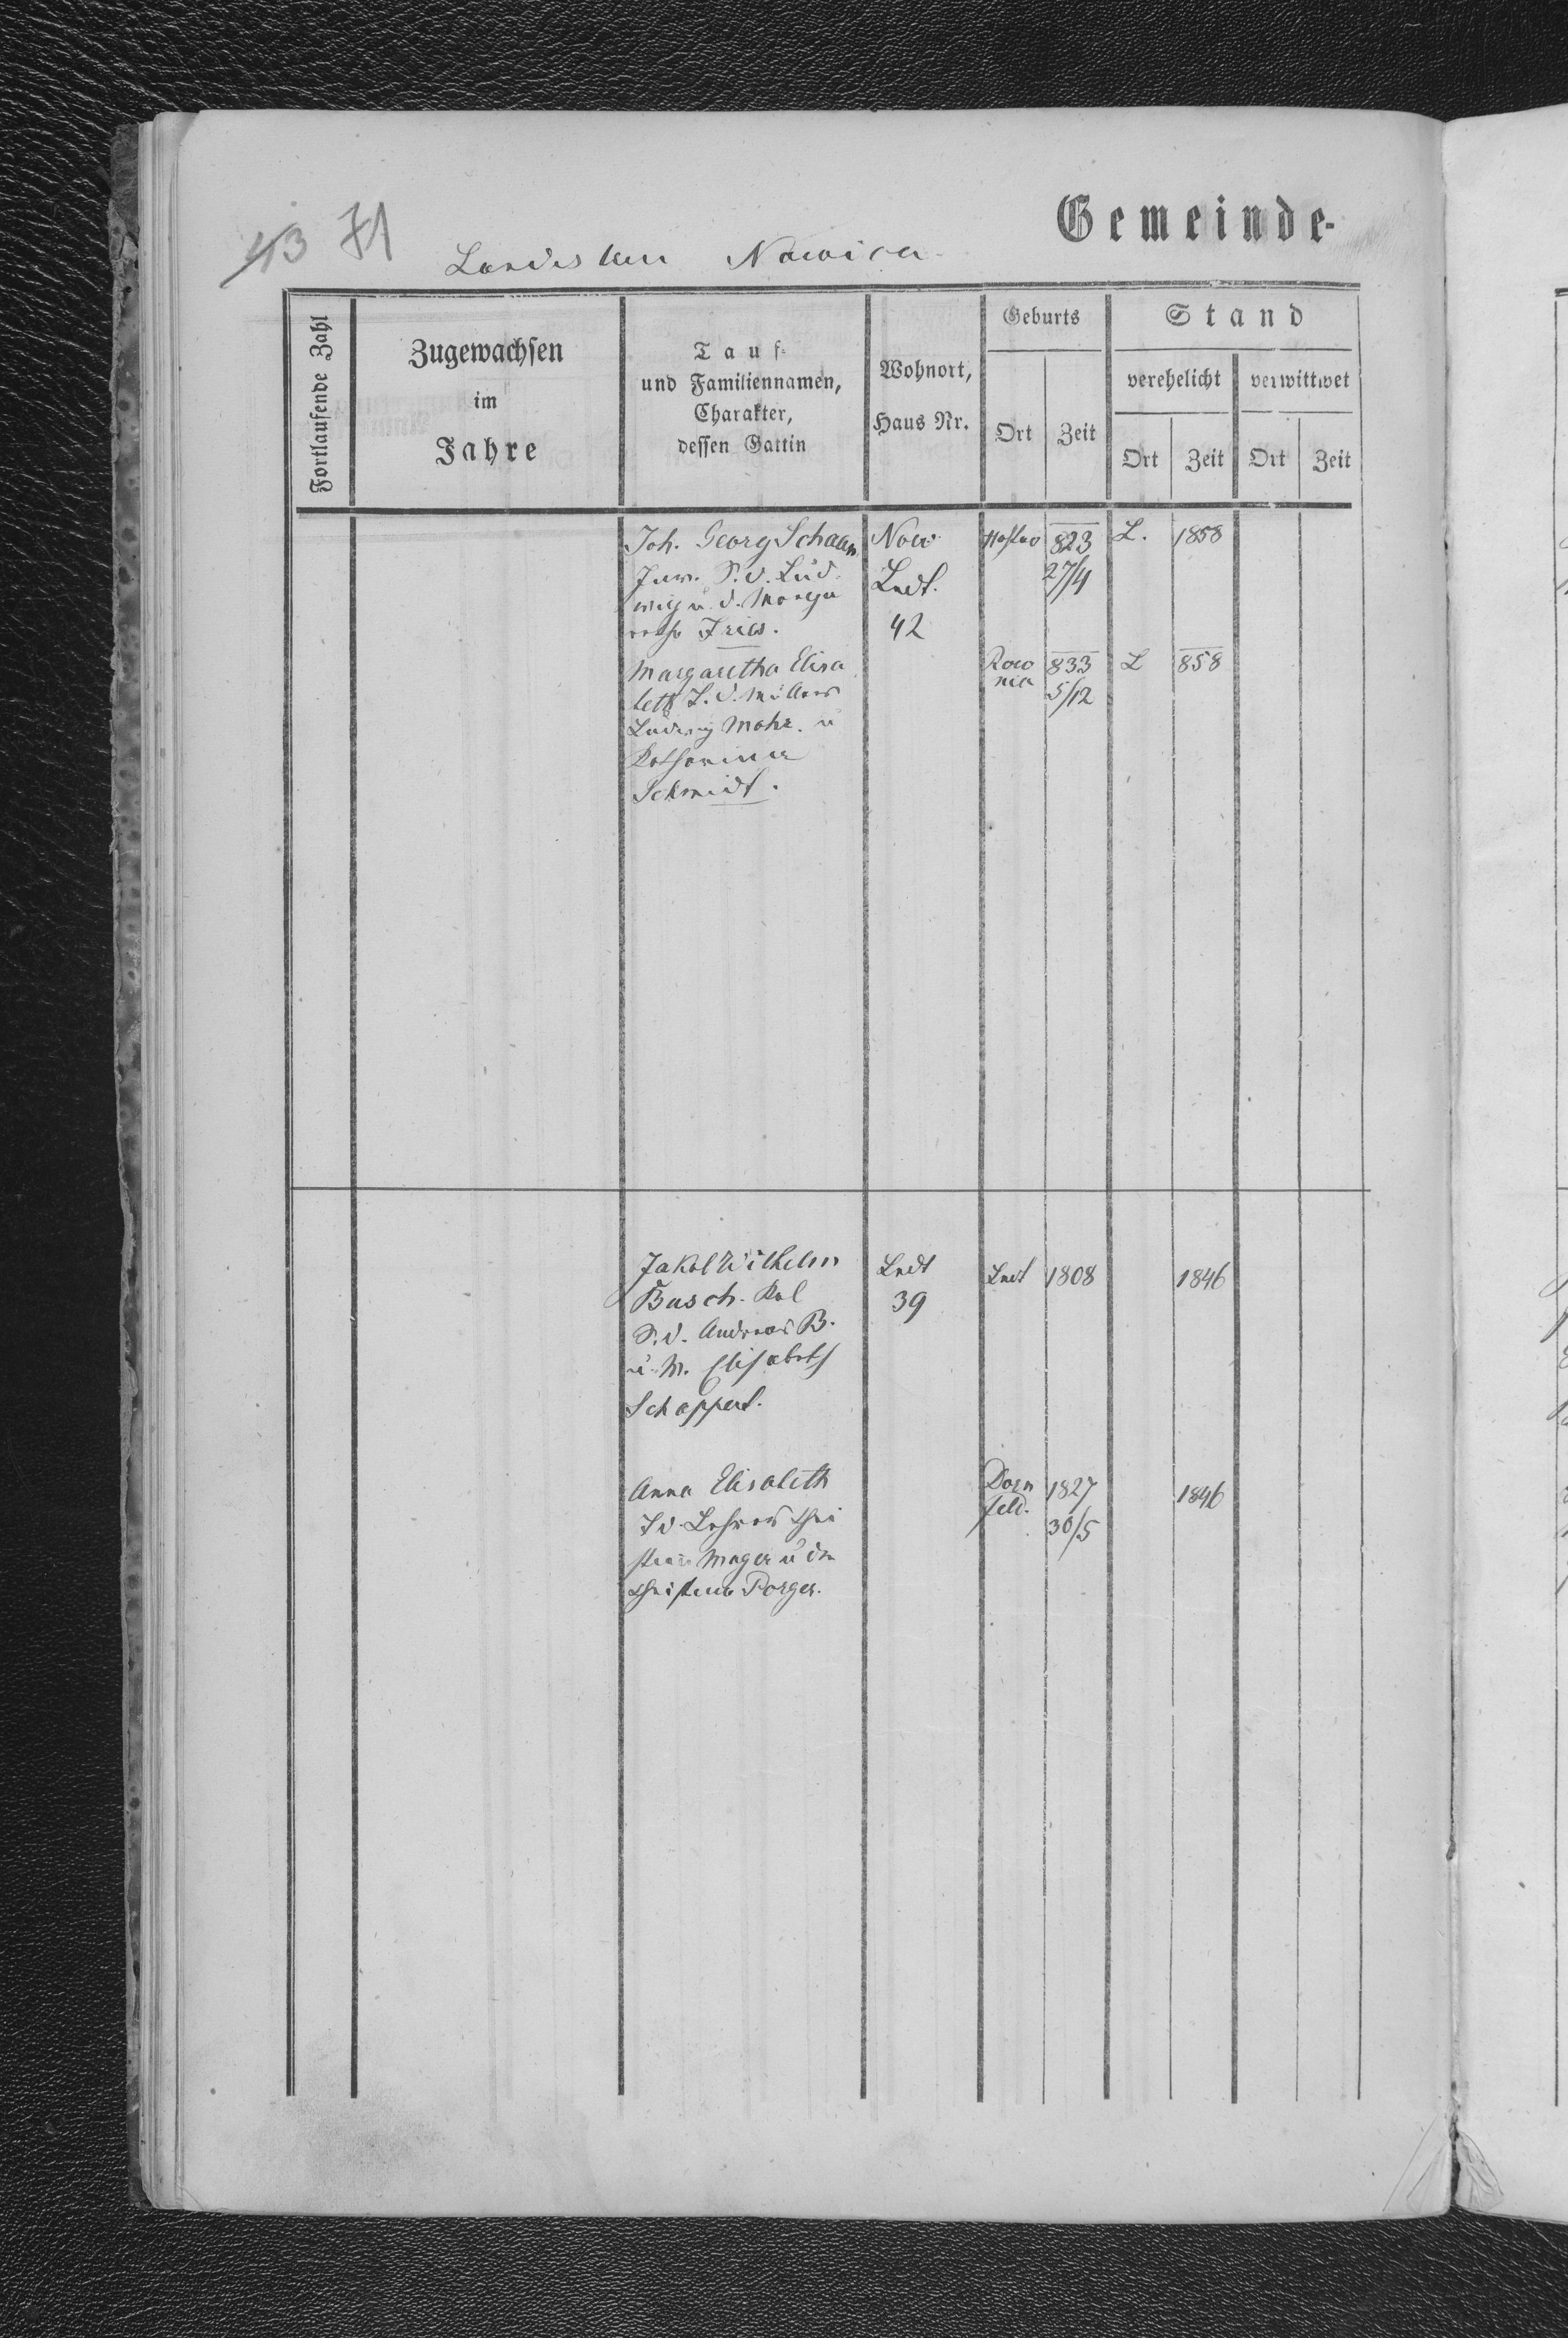 43 71
Gemeinde-
Landestreu Nowica
Fortlaufende Zahl
Zugewachsen
im
Jahre
Tauf-
und Familiennamen,
Charakter,
dessen Gattin
Wohnort,
Haus Nr.
Geburts
Ort Zeit
Stand
verehelicht verwittwet
Ort Zeit Ort Zeit
Joh. Georg Schaan Now 823 L. 1858
S. d. Lud Lndt. 27/4
wig u. d. Marga
retha Fries. 42
Margaretha Elisa Row 833 L 858
beth T. d. Müllers nia 5/12
Ludwig Mohr. u
Katharina
Schmidt.
Jakob Wilhelm Lndt Lndt 1808 1846
Busch. Kol 39
S. d. Andreas B.
u. M. Elisabeth
Schappert.
Anna Elisabeth Dorn 1827 1846
T d. Lehrers Chri feld. 30/5
stian Mager u der
Christina Porger.